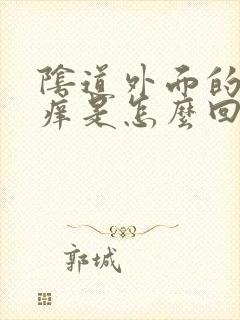 陰道外面的
痒是怎麼回
郭城